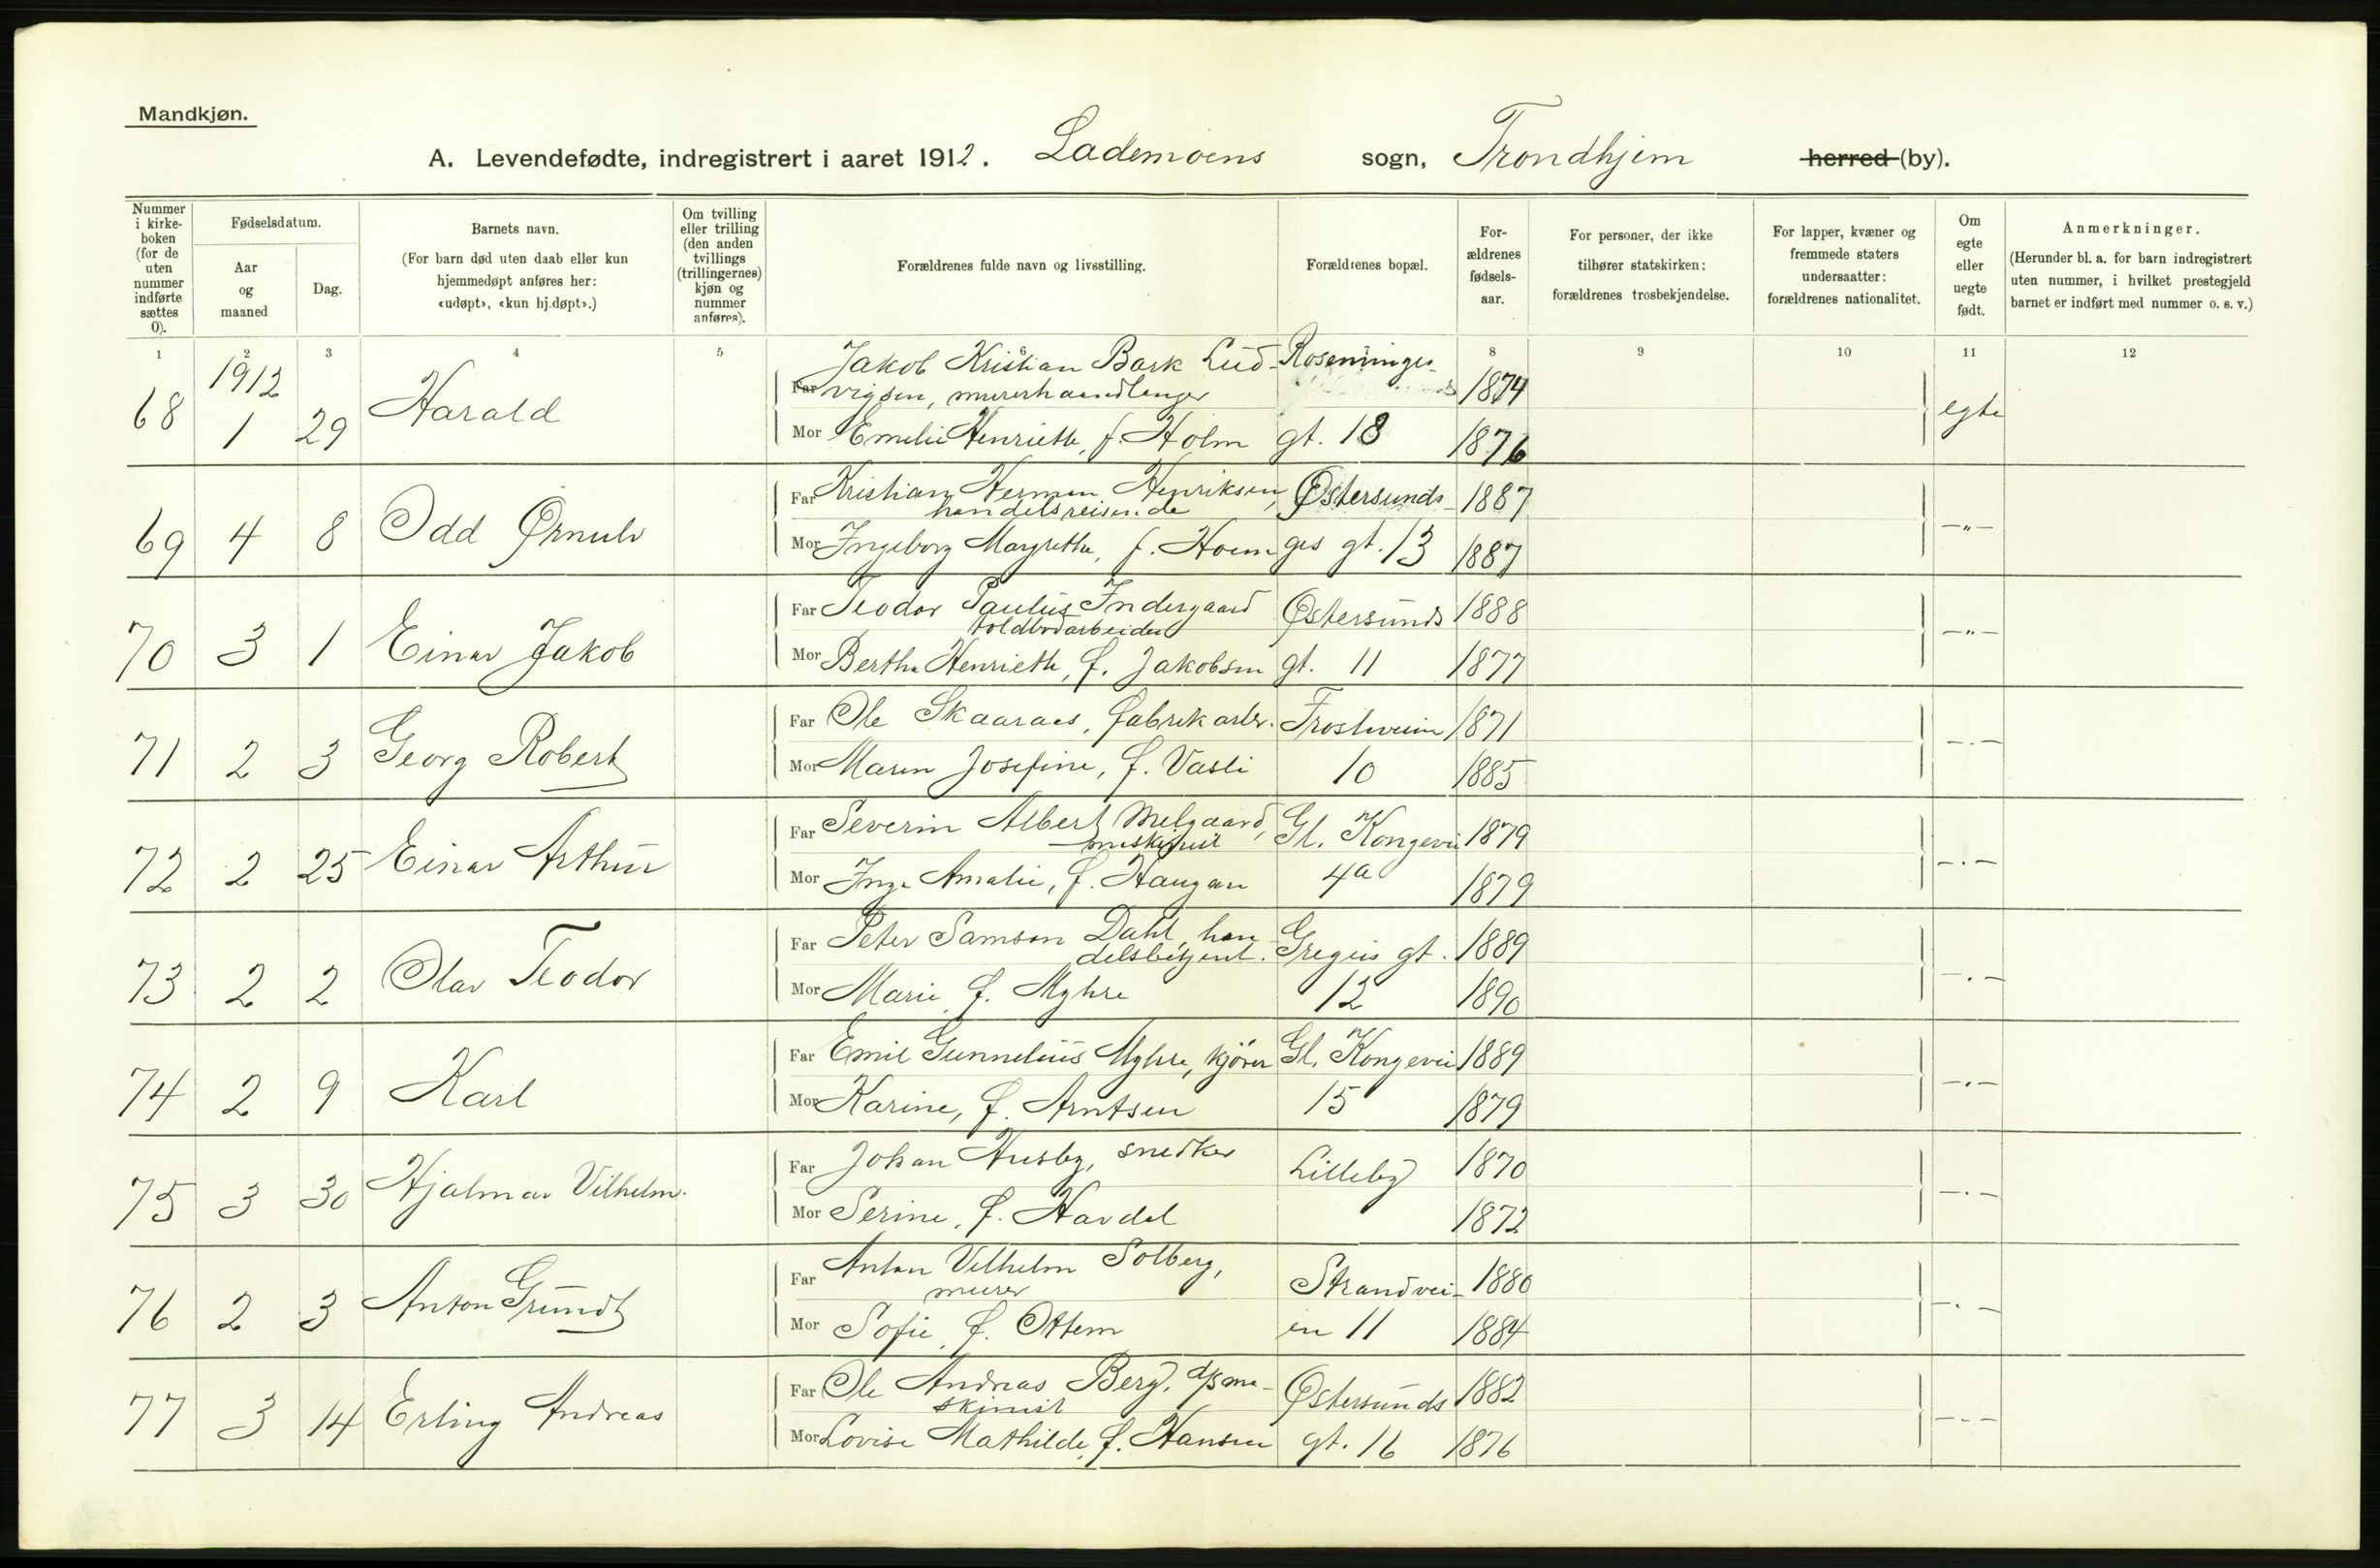 Mandkjøn.
A. Levendefødte, indregistrert i aaret 1912. Lademoens sogn, Trondhjem herred (by).
Nummer i kirkeboken (for de uten nummer indførte sættes 0).
Fødselsdatum.
Aar og maaned
Dag.
Barnets navn.
(For barn død uten daab eller kun hjemmedøpt anføres her: «udøpt», «kun hj.døpt».)
Om tvilling eller trilling (den anden tvillings (trillingernes) kjøn og nummer anføres).
Forældrenes fulde navn og livsstilling.
Forældrenes bopæl.
Forældrenes fødselsaar.
For personer, der ikke tilhører statskirken: forældrenes trosbekjendelse.
For lapper, kvæner og fremmede staters undersaatter: forældrenes nationalitet.
Om egte eller uegte født.
Anmerkninger.
(Herunder bl. a. for barn indregistrert uten nummer, i hvilket prestegjeld barnet er indført med nummer o. s. v.)
1 2 3 4 5 6 8 9 10 11 12
1912
68 1 29 Harald
Far Jakob Kristian Bark Lud- Rosenninges-
vigsen, murerhaandlanger 1874
Mor Emelie Henriette, f. Holm gt. 18 1876
egte
69 4 8 Odd Ørnulv
Far Kristian Herman Henriksen, Østersunds- 1887
handelsreisende
Mor Ingeborg Margrethe, f. Hoem ges gt. 13 1887
—"—
70 3 1 Einar Jakob
Far Teodor Paulus Indergaard Østersunds 1888
toldbodarbeider
Mor Bertha Henriette, f. Jakobsen gt. 11 1877
—"—
71 2 3 Georg Robert
Far Ole Skaaraas, fabrikarb. Frostveien 1871
Mor Maren Josefine, f. Vasli 10 1885
—"—
72 2 25 Einar Arthur
Far Severin Albert Melgaard, Gl. Kongevei 1879
maskinist
Mor Inga Amalie, f. Haugan 4a 1879
—"—
73 2 2 Olav Teodor
Far Peter Samson Dahl, han- Gregus gt. 1889
delsbetjent.
Mor Marie, f. Myhre 12 1890
—"—
74 2 9 Karl
Far Emil Gunnelius Myhre, kjører Gl. Kongevei 1889
Mor Karine, f. Arntsen 15 1879
—"—
75 3 30 Hjalmar Vilhelm.
Far Johan Husby, snedker Lilleby 1870
Mor Serine, f. Havdal 1872
—"—
76 2 3 Anton Grundt
Far Anton Vilhelm Solberg, Strandvei- 1880
murer
Mor Sofie, f. Ottem en 11 1884
—"—
77 3 14 Erling Andreas
Far Ole Andreas Berg, d/s ma- Østersunds 1882
skinist
Mor Lovise Mathilde, f. Hansen gt. 16 1876
—"—